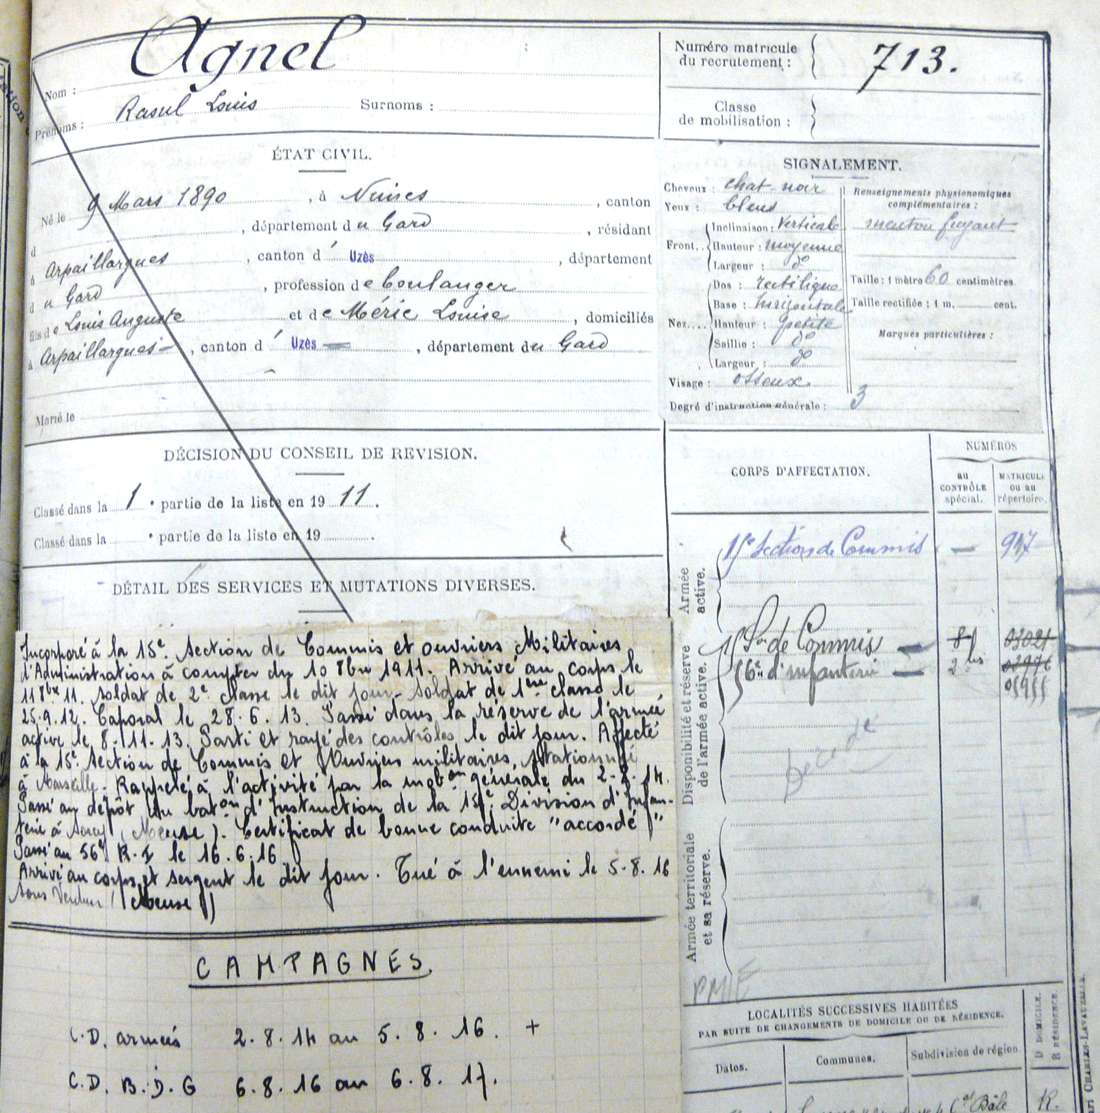 Nom : Agnel
Numéro matricule du recrutement : 713.
Prénoms : Raoul Louis Surnoms :
Classe de mobilisation :
ÉTAT CIVIL.
Né le 9 Mars 1890, à Nimes, canton
d , département du Gard, résidant
à Arpaillargues, canton d' Uzès, département
du Gard, profession de boulanger
fils de Louis Auguste et de Méric Louise, domiciliés
à Arpaillargues, canton d' Uzès, département du Gard
Marié le
SIGNALEMENT.
Cheveux : chat noir
Yeux : bleus
Front.. Inclinaison : Verticale
Hauteur : moyenne
Largeur : do
Nez.... Dos : rectiligne
Base : horizontale
Hauteur : petite
Saillie : do
Largeur : do
Visage : osseux
Degré d'instruction générale : 3
Renseignements physionomiques complémentaires :
menton fuyant
Taille : 1 mètre 60 centimètres.
Taille rectifiée : 1 m. cent.
Marques particulières :
DÉCISION DU CONSEIL DE REVISION.
Classé dans la 1e partie de la liste en 1911.
Classé dans la e partie de la liste en 19 .
DÉTAIL DES SERVICES ET MUTATIONS DIVERSES.
Incorporé à la 15e Section de Commis et ouvriers Militaires
d'Administration à compter du 10 8bre 1911. Arrivé au corps le
11 8bre 11. soldat de 2e Classe le dit jour. Soldat de 1ere classe le
25.9.12. Caporal le 28.6.13. Passé dans la réserve de l'armée
active le 8.11.13. Parti et rayé des contrôles le dit jour. Affecté
à la 15e Section de Commis et Ouvriers militaires, stationnée
à Marseille. Rappelé à l'activité par la mobon générale du 2.8.14.
Passé au dépôt du baton d'Instruction de la 15e Division d'Infan-
terie à (Meuse). Certificat de bonne conduite "accordé"
Passé au 56e R.I le 16.6.16
Arrivé au corps et sergent le dit jour. Tué à l'ennemi le 5.8.16
sous Verdun (Meuse)
CAMPAGNES
C.D. armées 2.8.14 au 5.8.16. +
C.D. B.D.G 6.8.16 au 6.8.17.
CORPS D'AFFECTATION.
NUMÉROS
au CONTRÔLE spécial.
MATRICULE ou au répertoire.
Armée active.
15e Section de Commis — 947
Disponibilité et réserve de l'armée active.
15e Son de Commis
56e d'infanterie
Décédé
Armée territoriale et sa réserve.
LOCALITÉS SUCCESSIVES HABITÉES
PAR SUITE DE CHANGEMENTS DE DOMICILE OU DE RÉSIDENCE.
Dates.
Communes.
Subdivision de région
D DOMICILE.
R RÉSIDENCE.
Bâle R.